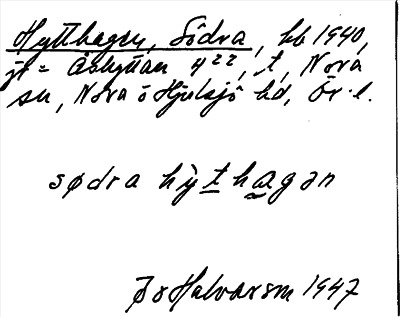 Hytthagen, Södra, hb 1940,
jr = Åshyttan 4²², t, Nora
sn, Nora o Hjulsjö hd, Ör. l.
sødra hỳt̲ha̰gən
J o Halvarsson 1947